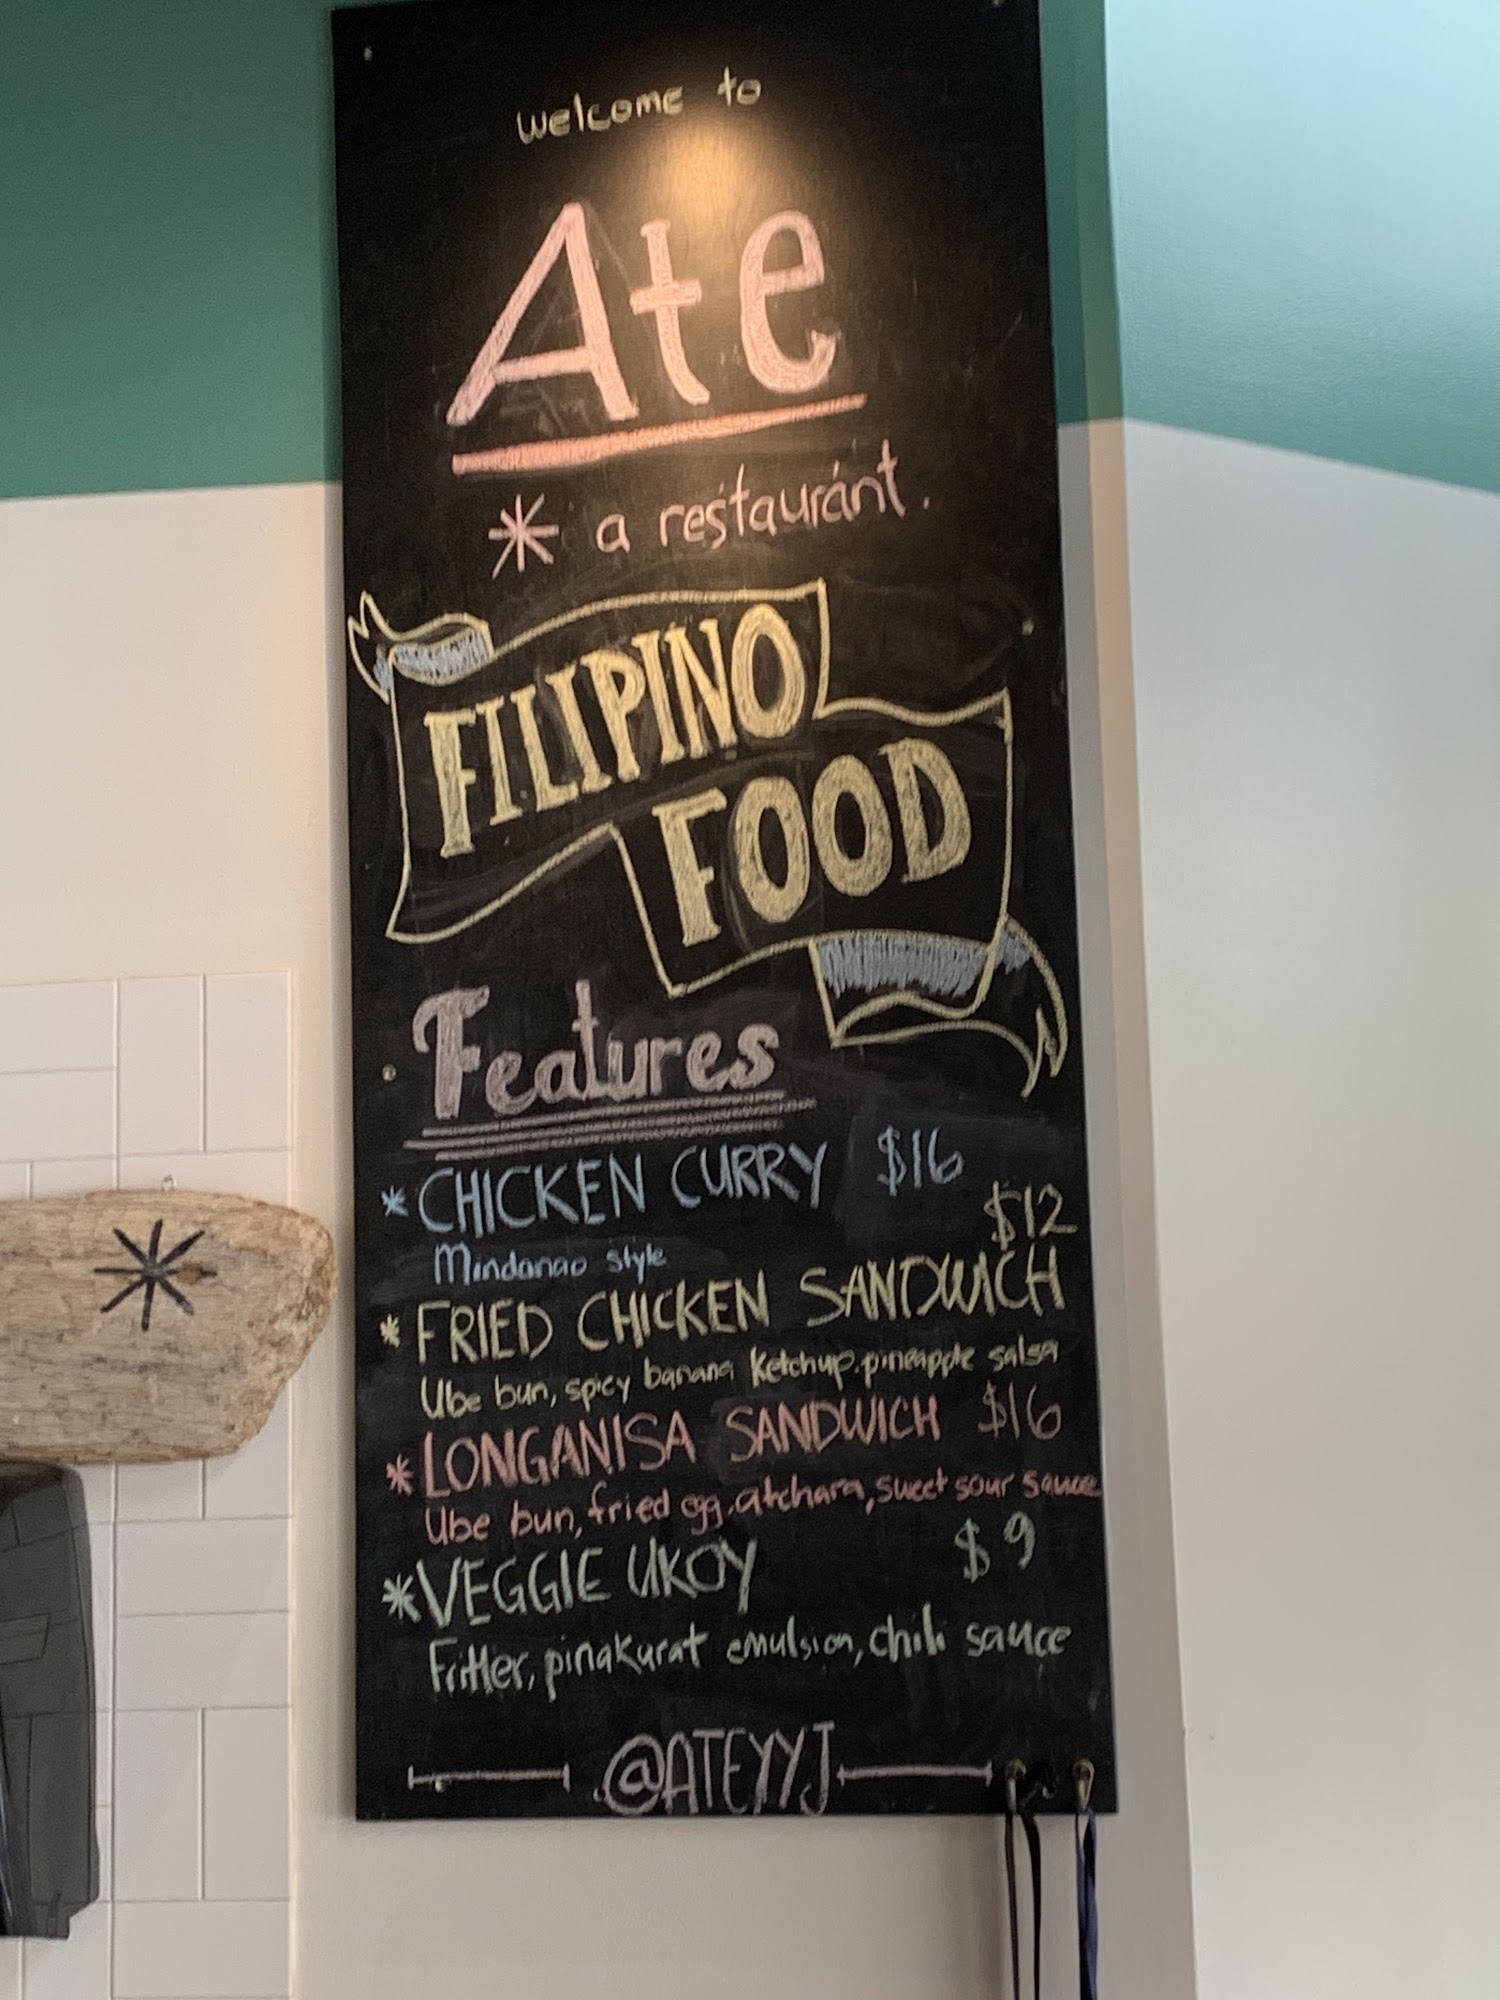 welcome to
Ate
* a restaurant.
FILIPINO
FOOD
Features
* CHICKEN CURRY $16
Mindanao style
$12
* FRIED CHICKEN SANDWICH
Ube bun, spicy banana ketchup, pineapple salsa
* LONGANISA SANDWICH $16
Ube bun, fried egg, atchara, sweet sour sauce
* VEGGIE UKOY $9
Fritter, pinakurat emulsion, chili sauce
@ATEYYJ